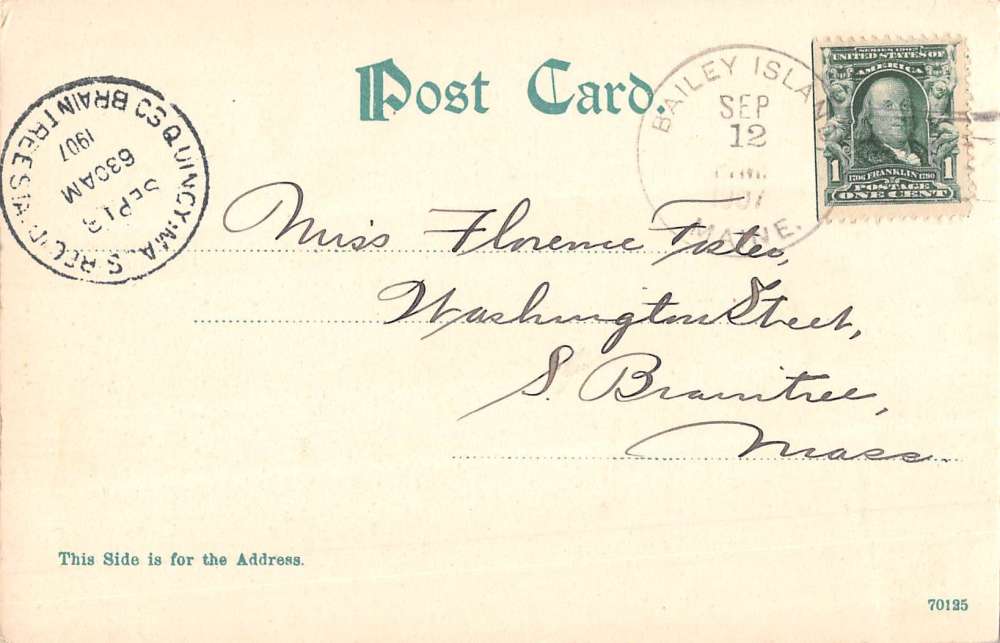 Post Card.
BAILEY ISLAND
SEP
12
MAINE.
SERIES 1902
UNITED STATES OF
AMERICA
1 1
1706 FRANKLIN 1790
POSTAGE
ONE CENT
QUINCY, MASS.
SO BRAINTREE STA.
REC'D
SEP 13
630AM
1907
Miss Florence Foster,
Washington Street,
S. Braintree,
Mass.
This Side is for the Address.
70125